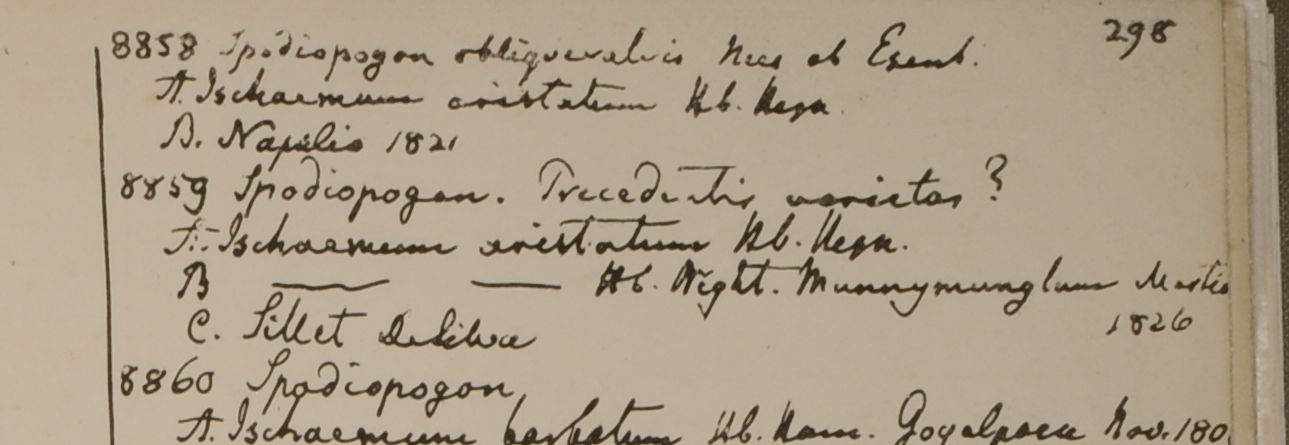 298
8858 Spodiopogon obliquivalvis Nees ab Esenb.
A. Ischaemum aristatum Hb. Heyn.
B. Napalia 1821
8859 Spodiopogon. Precedentis varietas?
A. Ischaemum aristatum Hb. Heyn.
B — — Hb. Wight. Munnymunglum Martio
1826
C. Sillet DeSilva
8860 Spodiopogon
A. Ischaemum barbatum Hb. Ham. Goyalpara Nov. 180